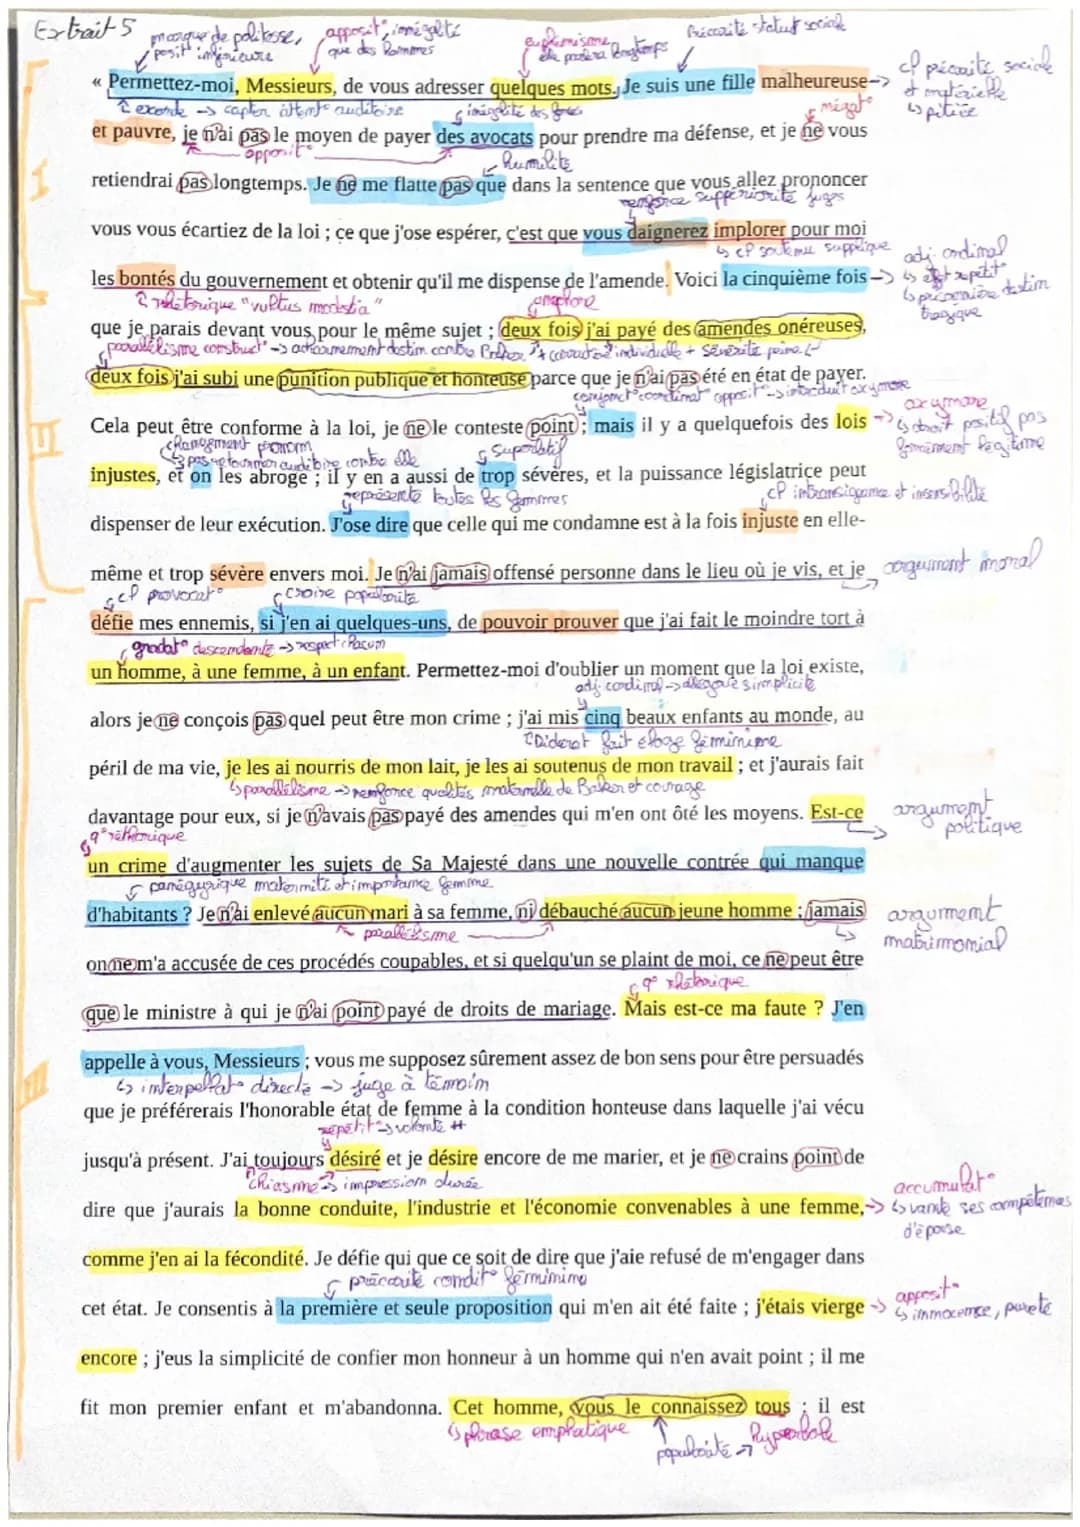 Extrait 5
marque de politesse,
posit° inférieure
apposit°, inégalité
que des hommes
euphémisme
elle parlera longtemps
Précarité statut social
« Permettez-moi, Messieurs, de vous adresser quelques mots. Je suis une fille malheureuse
cf précarité sociale
et matérielle
↳ pitiée
exorde → capter attent° auditoire
inégalité des forces
négat°
et pauvre, je n'ai pas le moyen de payer des avocats pour prendre ma défense, et je ne vous
opposit°
humilité
I
retiendrai pas longtemps. Je ne me flatte pas que dans la sentence que vous allez prononcer
renforce suppériorité juges
vous vous écartiez de la loi ; ce que j'ose espérer, c'est que vous daignerez implorer pour moi
↳ CP soutenu supplique
les bontés du gouvernement et obtenir qu'il me dispense de l'amende. Voici la cinquième fois
adj. ordinal
↳ effet répétit°
↳ prisonnière destin
tragique
rhétorique "vultus modestia"
anaphore
que je parais devant vous pour le même sujet ; deux fois j'ai payé des amendes onéreuses,
parallélisme construct° → acharnement destin contre Baker
+ caractère individuelle + sévérité peine
deux fois j'ai subi une punition publique et honteuse parce que je n'ai pas été en état de payer.
conjonct° coordinat° opposit° → introduit oxymore
II
Cela peut être conforme à la loi, je ne le conteste point ; mais il y a quelquefois des lois
oxymore
↳ droit positif pas
forcément légitime
changement pronom
↳ pas retourner auditoire contre elle
superlatif
injustes, et on les abroge ; il y en a aussi de trop sévères, et la puissance législatrice peut
représente toutes les femmes
CP intransigeance et insensibilité
dispenser de leur exécution. J'ose dire que celle qui me condamne est à la fois injuste en elle-
même et trop sévère envers moi. Je n'ai jamais offensé personne dans le lieu où je vis, et je
argument moral
cf provocat°
croire popularité
défie mes ennemis, si j'en ai quelques-uns, de pouvoir prouver que j'ai fait le moindre tort à
gradat° descendante → respect chacun
un homme, à une femme, à un enfant. Permettez-moi d'oublier un moment que la loi existe,
adj cardinal → allégorie simplicité
alors je ne conçois pas quel peut être mon crime ; j'ai mis cinq beaux enfants au monde, au
Diderot fait éloge féminisme
péril de ma vie, je les ai nourris de mon lait, je les ai soutenus de mon travail ; et j'aurais fait
↳ parallélisme → renforce qualités maternelle de Baker et courage
davantage pour eux, si je n'avais pas payé des amendes qui m'en ont ôté les moyens. Est-ce
argument
politique
q° réthorique
un crime d'augmenter les sujets de Sa Majesté dans une nouvelle contrée qui manque
panégyrique maternité et importance femme
d'habitants ? Je n'ai enlevé aucun mari à sa femme, ni débauché aucun jeune homme ; jamais
argument
matrimonial
parallélisme
on ne m'a accusée de ces procédés coupables, et si quelqu'un se plaint de moi, ce ne peut être
q° rhétorique
que le ministre à qui je n'ai point payé de droits de mariage. Mais est-ce ma faute ? J'en
III
appelle à vous, Messieurs ; vous me supposez sûrement assez de bon sens pour être persuadés
↳ interpellat° directe → juge à témoin
que je préférerais l'honorable état de femme à la condition honteuse dans laquelle j'ai vécu
répétit° → volonté #
jusqu'à présent. J'ai toujours désiré et je désire encore de me marier, et je ne crains point de
Chiasme → impression durée
dire que j'aurais la bonne conduite, l'industrie et l'économie convenables à une femme,
accumulat°
↳ vante ses compétences
d'épouse
comme j'en ai la fécondité. Je défie qui que ce soit de dire que j'aie refusé de m'engager dans
précarité condit° féminine
cet état. Je consentis à la première et seule proposition qui m'en ait été faite ; j'étais vierge
apposit°
↳ innocence, pureté
encore ; j'eus la simplicité de confier mon honneur à un homme qui n'en avait point ; il me
fit mon premier enfant et m'abandonna. Cet homme, vous le connaissez tous ; il est
↳ phrase emphatique
popularité → hyperbole